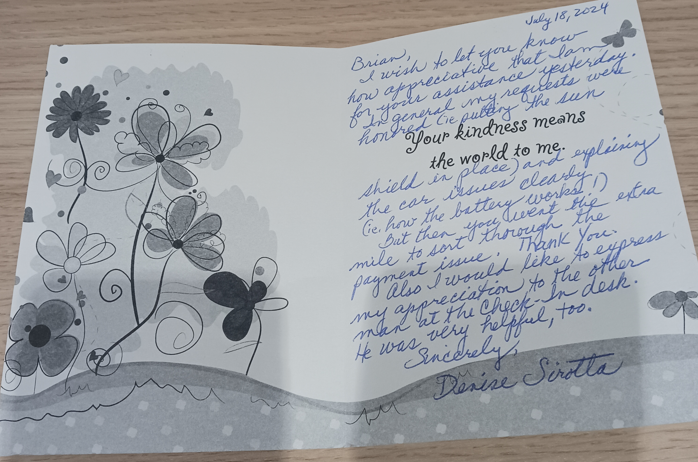 July 18, 2024
Brian,
I wish to let you know
how appreciative that I am
for your assistance yesterday.
In general my requests were
honored (ie putting the sun
Your kindness means
the world to me.
shield in place) and explaining
the car issues clearly
(ie. how the battery works!)
But then you went the extra
mile to sort thorough the
payment issue. Thank You.
Also I would like to express
my appreciation to the other
man at the Check-In desk.
He was very helpful, too.
Sincerely,
Denise Sirotta